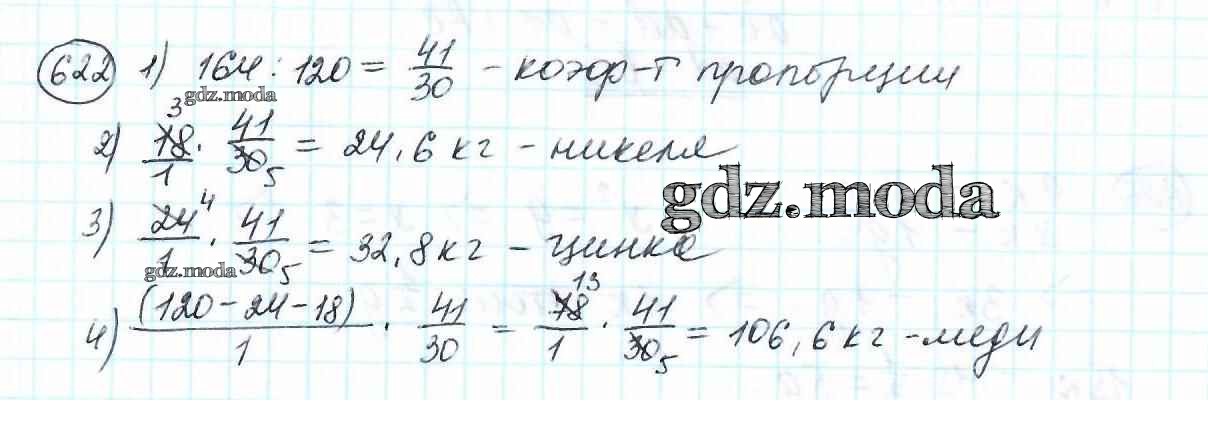 622 1) 164 : 120 = 41/30 - коэф-т пропорции
gdz.moda
2) 18/1 · 41/30 = 24,6 кг - никеля
3 5
gdz.moda
3) 24/1 · 41/30 = 32,8 кг - цинка
4 5
gdz.moda
4) (120-24-18)/1 · 41/30 = 78/1 · 41/30 = 106,6 кг - меди
13 5